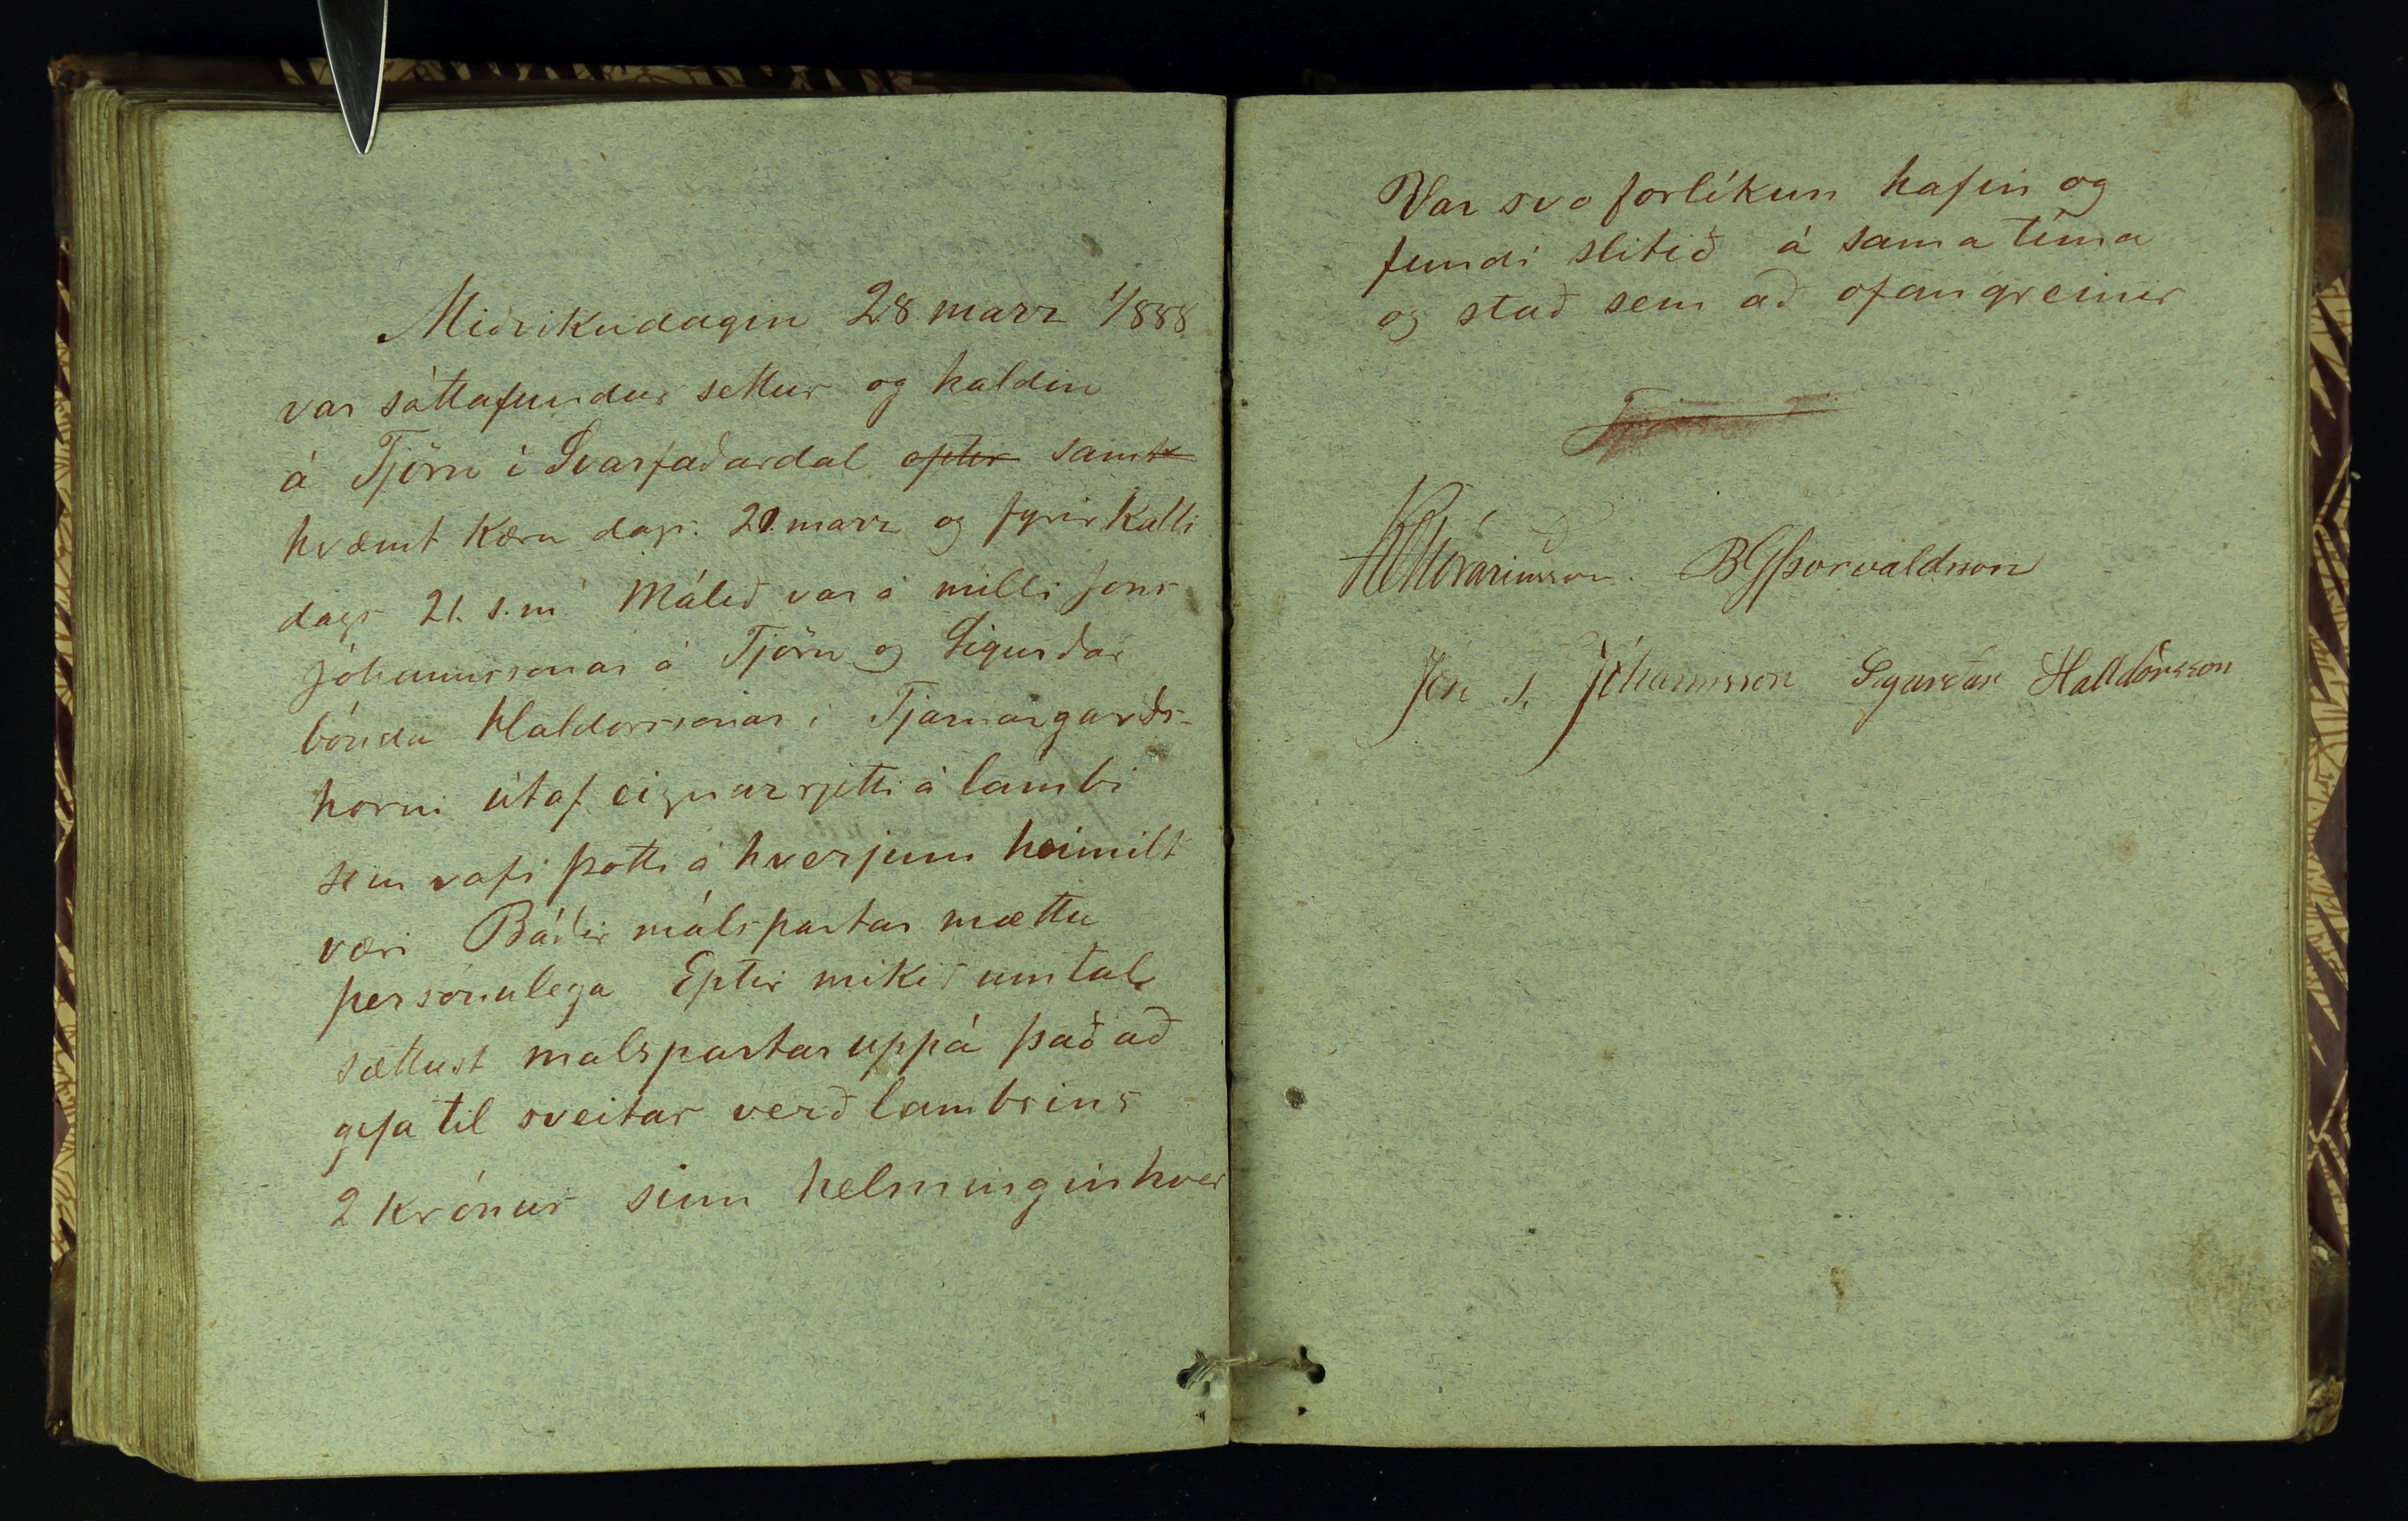 Miðvikudagin 28 marz 1/888
var sáttafundur settur og haldin
á Tjörn í Svarfaðardal eptir samk
hvæmt Kæru dags. 20. marz og fyrirkalli
dags 21. s.m. Málið var á milli Jons
Jóhannssonar á Tjörn og Sigurðar
bónda Haldorssonar í Tjarnargarðs-
horni útaf eignarrjetti á lambi
sem vafi þotti á hverjum heimilt
væri Báðir málspartar mættu
personulega Eptir mikið umtal
sættust malspartar uppá það að
gefa til sveitar verð lambsins
2 Krónur sinn helmingin hver
Var svo forlíkun hafin og
fundi slitið á sama tíma
og stað sem að ofangreinir
BGÞorvaldsson
Jón S. Jóhannsson Sigurður Halldórsson